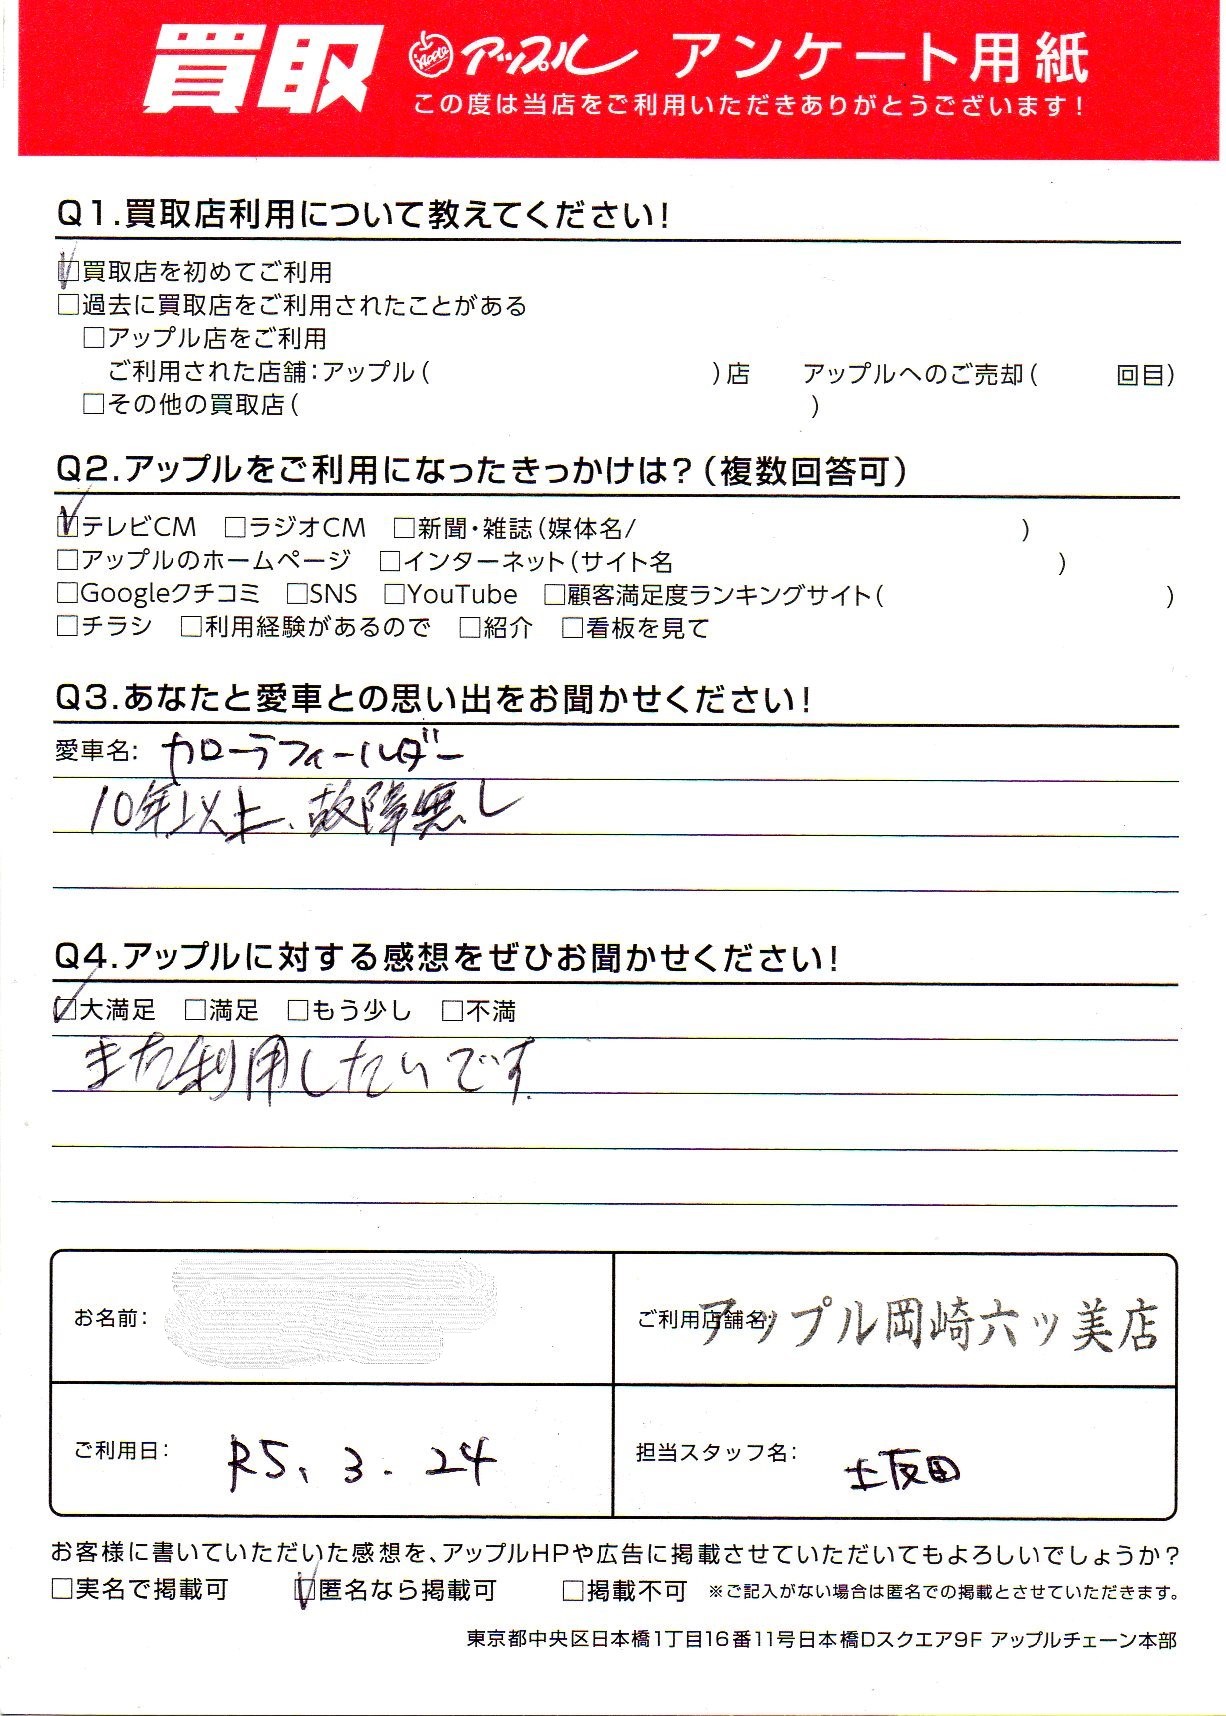 買取 Apple アップル アンケート用紙
この度は当店をご利用いただきありがとうございます!
Q1.買取店利用について教えてください!
☑買取店を初めてご利用
□過去に買取店をご利用されたことがある
□アップル店をご利用
ご利用された店舗:アップル( )店 アップルへのご売却( 回目)
□その他の買取店( )
Q2.アップルをご利用になったきっかけは?(複数回答可)
☑テレビCM □ラジオCM □新聞・雑誌(媒体名/ )
□アップルのホームページ □インターネット(サイト名 )
□Googleクチコミ □SNS □YouTube □顧客満足度ランキングサイト( )
□チラシ □利用経験があるので □紹介 □看板を見て
Q3.あなたと愛車との思い出をお聞かせください!
愛車名: カローラフィールダー
10年以上、故障無し
Q4.アップルに対する感想をぜひお聞かせください!
☑大満足 □満足 □もう少し □不満
また利用したいです.
お名前:
ご利用店舗名: アップル岡崎六ッ美店
ご利用日: R5、3.24
担当スタッフ名: 土坂田
お客様に書いていただいた感想を、アップルHPや広告に掲載させていただいてもよろしいでしょうか?
□実名で掲載可 ☑匿名なら掲載可 □掲載不可 ※ご記入がない場合は匿名での掲載とさせていただきます。
東京都中央区日本橋1丁目16番11号日本橋Dスクエア9F アップルチェーン本部